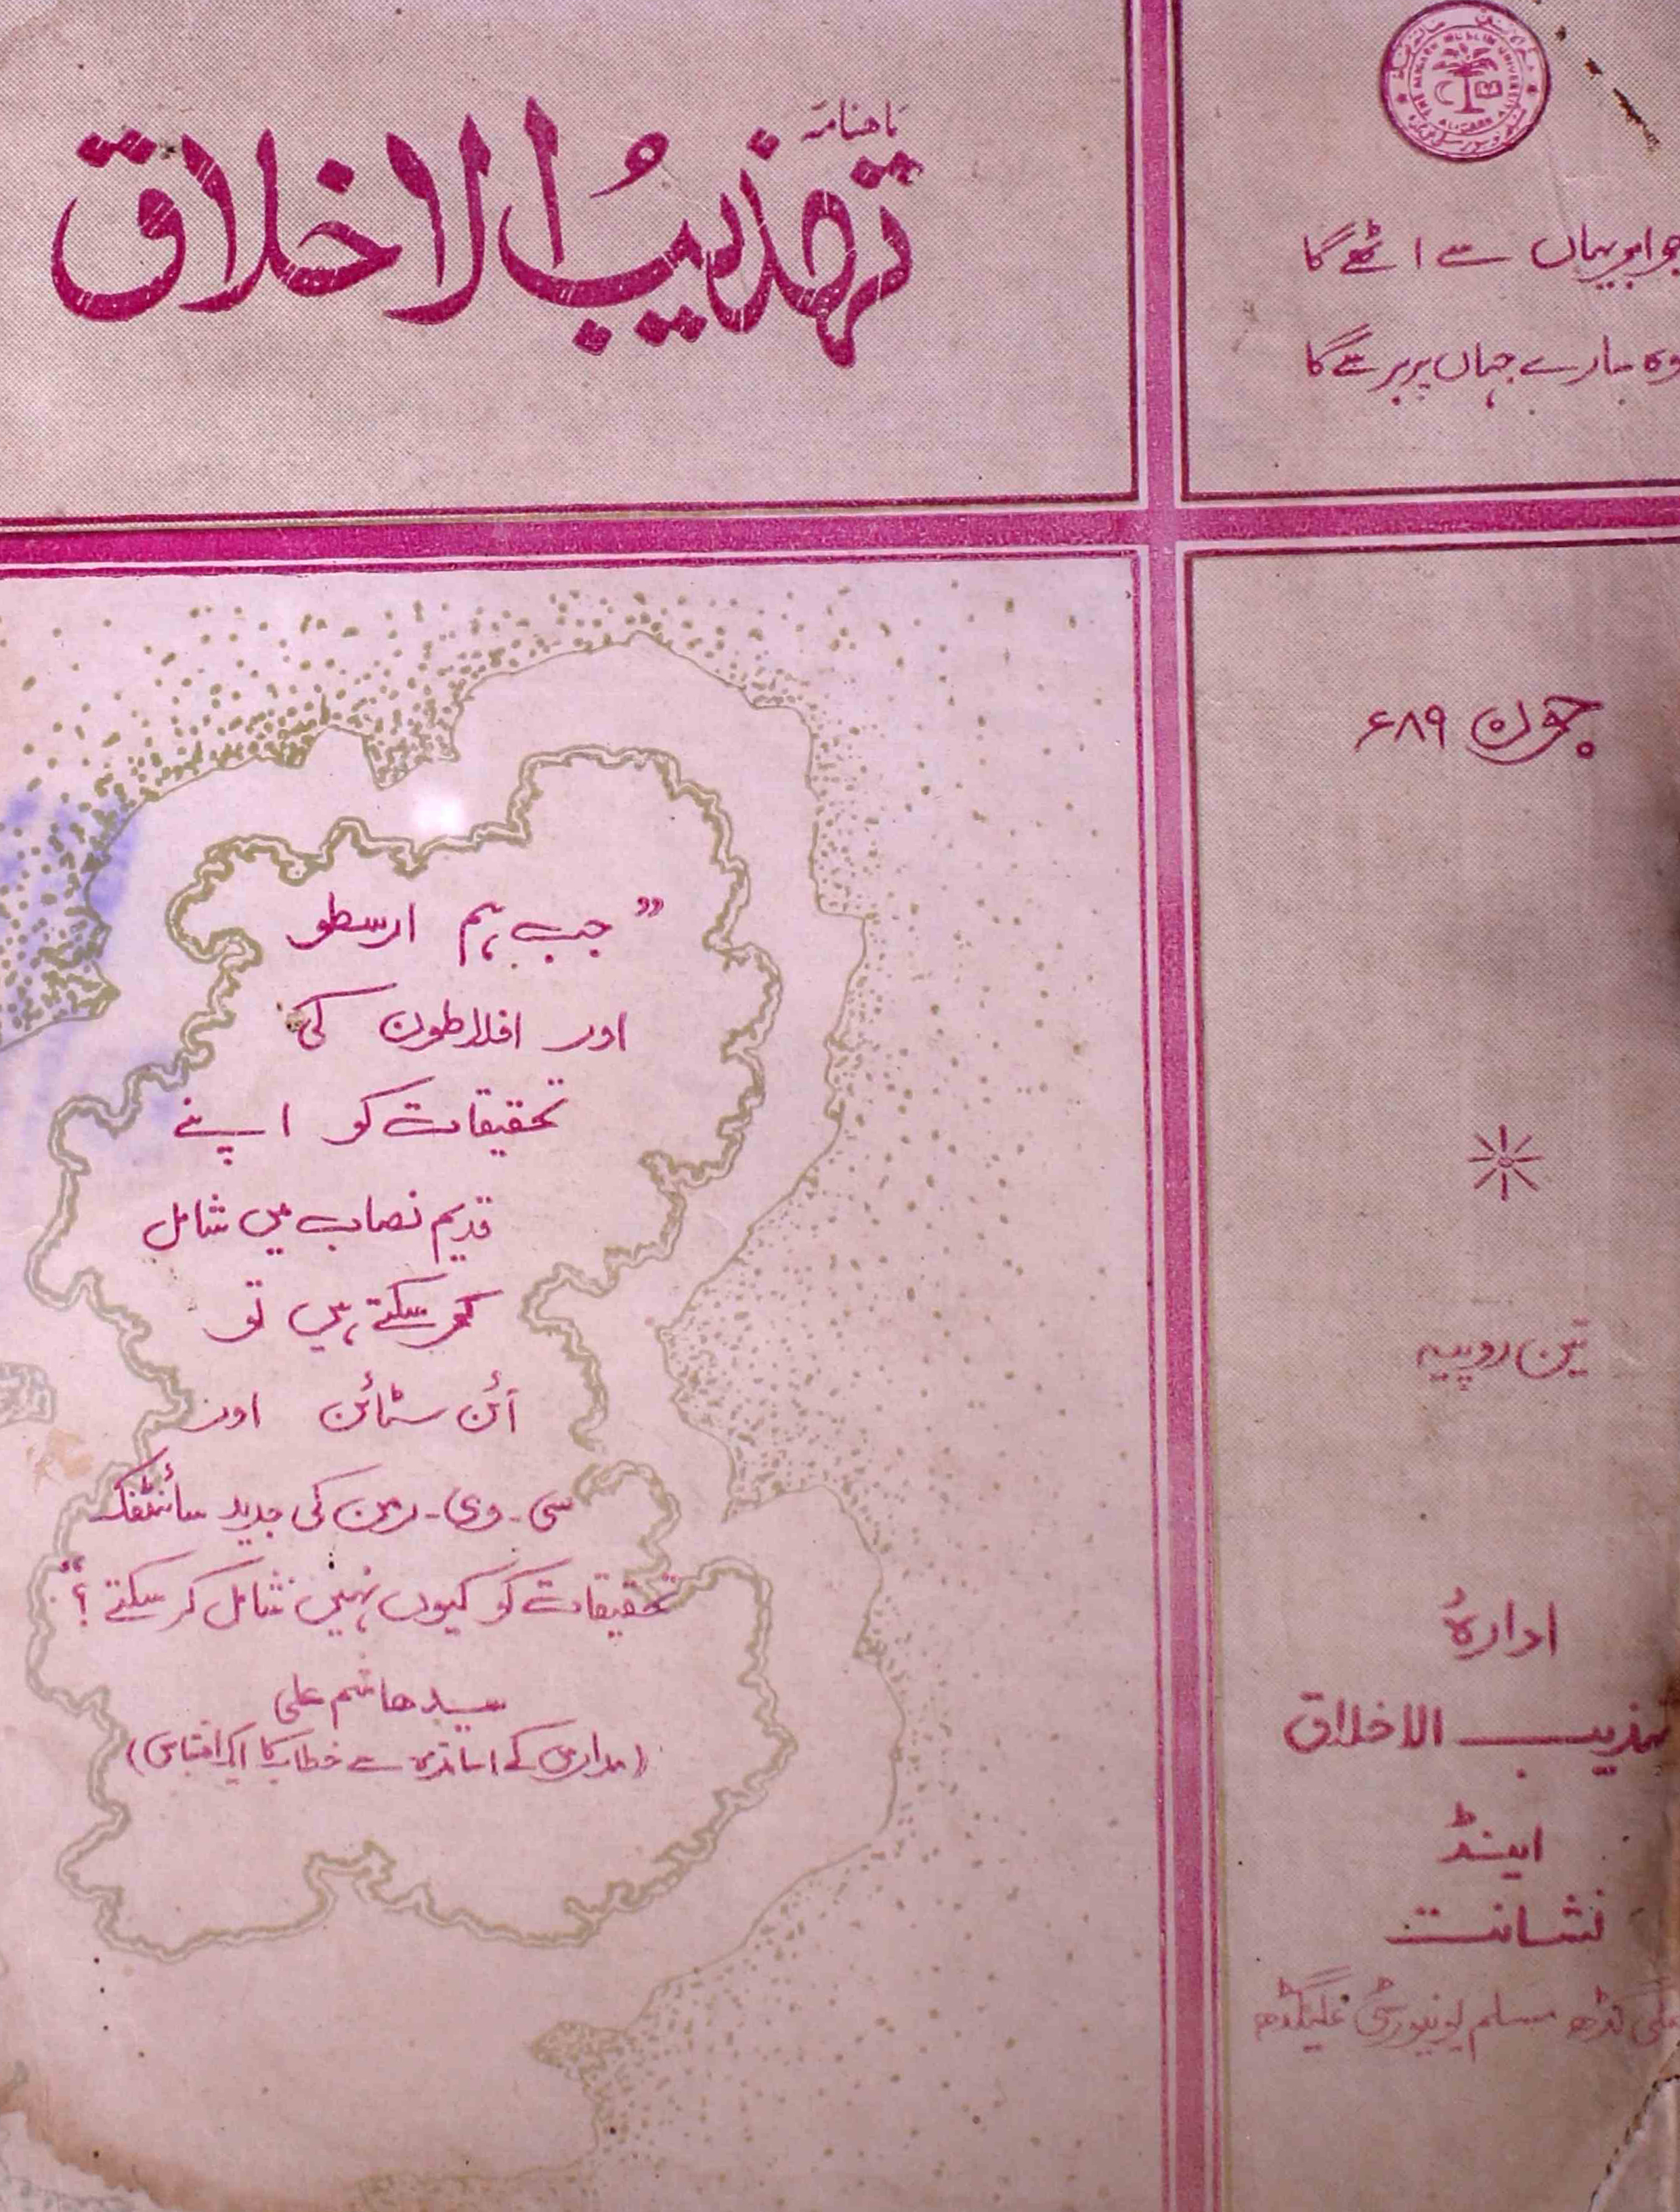 ماہنامہ
تہذیبُ الاخلاق
THE ALIGARH MUSLIM UNIVERSITY
ALIGARH
جو ابر یہاں سے اٹھے گا
وہ سارے جہاں پر برسے گا
جون ۸۹ء
تین روپیہ
ادارۂ
تہذیب الاخلاق
اینڈ
نشانت
علی گڑھ مسلم یونیورسٹی علیگڈھ
”جب ہم ارسطو
اور افلاطون کی
تحقیقات کو اپنے
قدیم نصاب میں شامل
کر سکتے ہیں تو
آئن سٹائن اور
سی۔وی۔رمن کی جدید سائنٹفک
تحقیقات کو کیوں نہیں شامل کر سکتے؟“
سید ھاشم علی
(مدارس کے اساتذہ سے خطاب کا ایک اقتباس)